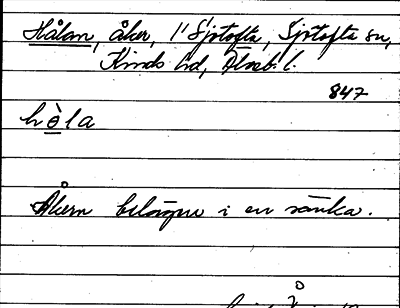 Hålan, åker, 1" Sjötofta, Sjötofta sn,
Kinds hd, Älvsb. l.
847
hòla
Åkern belägen i en sänka.